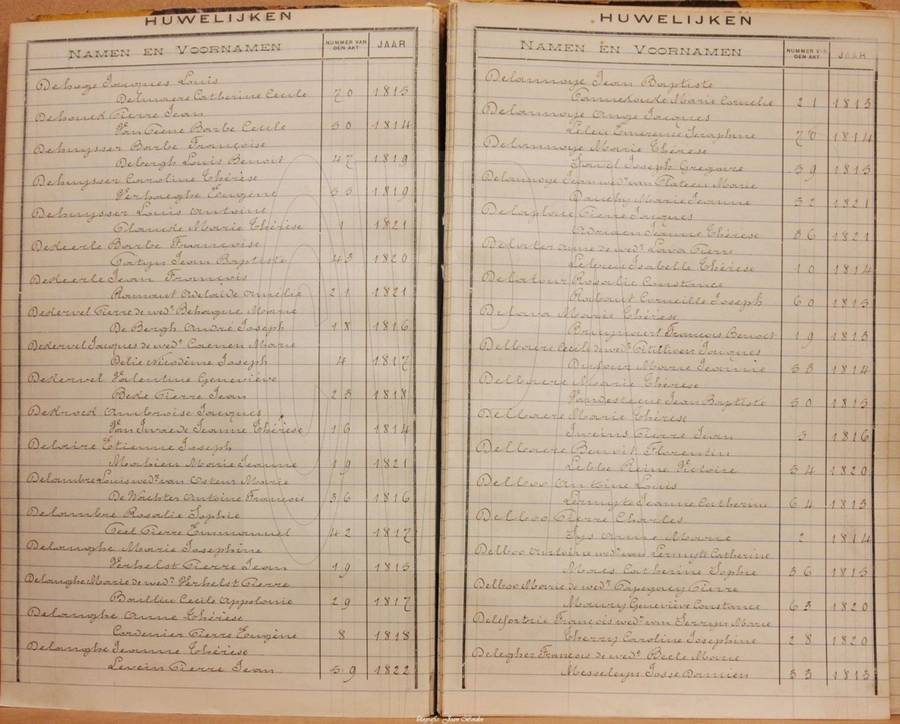 HUWELIJKEN
NAMEN EN VOORNAMEN NUMMER VAN DEN AKT JAAR
Dehage Jacques Louis
Delmaere Catherine Cecile 70 1815
Pierre Jean
Barbe Cecile 50 1814
Dehuysser Barbe Françoise
Debergh Louis Benoit 47 1819
Dehuysser Caroline Thérèse
Verhaeghe Eugene 55 1819
Dehuysser Louis Antoine
Marie Thérèse 1 1821
Dekeerle Barbe Françoise
Jean Baptiste 43 1820
Dekeerle Jean François
Ramaut Adelaide Amélie 21 1821
Dekervel Pierre de wedr Behague Marie
De Bergh André Joseph 18 1816
Dekervel Jacques de wedr Coenen Marie
Delie Nicodème Joseph 4 1817
Dekervel Valentine Geneviève
Bede Pierre Jean 23 1818
Ambroise Jacques
Jeanne Thérèse 16 1814
Delaire Etienne Joseph
Mahieu Marie Jeanne 19 1821
Delambre Louis wedr van Marie
De Wachter Antoine François 36 1816
Delambre Rosalie Sophie
Pierre Emmanuel 42 1817
Delanghe Marie Josephine
Verhelst Pierre Jean 19 1815
Delanghe Marie de wedr Verhelst Pierre
Baillin Cecile Appolonie 29 1817
Delanghe Anne Thérèse
Cordenier Pierre Eugène 8 1818
Delanghe Jeanne Thérèse
Levein Pierre Jean 59 1822
HUWELIJKEN
NAMEN EN VOORNAMEN NUMMER VAN DEN AKT JAAR
Delannoye Jean Baptiste
Marie Cornelie 21 1813
Delannoye Ange Jacques
Leleu Emerence Seraphine 70 1814
Delannoye Marie Thérèse
Joseph Gregoire 39 1813
Delannoye Jean wedr van Plateeu Marie
Marie Jeanne 32 1821
Pierre Jacques
Adriaen Jeanne Thérèse 36 1821
Anne de wedr Lava Pierre
Isabelle Thérèse 10 1814
Delatour Rosalie Constance
Rabaut Corneille Joseph 60 1813
Delava Marie Thérèse
Bruynaert François Benoit 19 1813
Delbaere Cecile de wedr Jacques
Dufour Marie Jeanne 33 1814
Delbaere Marie Thérèse
Jean Baptiste 50 1815
Delbaere Marie Thérèse
Pierre Jean 3 1816
Delbaere Benoit Florentin
Lebbe Reine Victoire 34 1820
Delboo Antoine Louis
Lermyte Jeanne Catherine 64 1813
Delboo Pierre Charles
Lys Anne Marie 2 1814
Delboo Antoine wedr van Lermyte Catherine
Maes Catherine Sophie 36 1815
Delboo Marie de wedr Pierre
Maury Geneviève Constance 63 1820
Delefortrie François wedr van Serryn Marie
Cherry Caroline Josephine 28 1820
Delegher François de wedr Beele Marie
Messelyn Josse Damien 33 1813